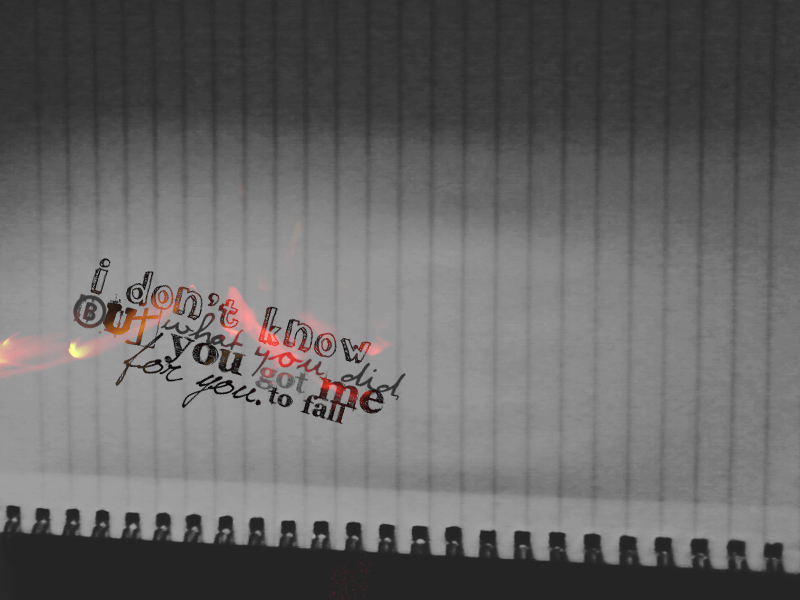 i don't know
what you did,
But you got me
for you. to fall